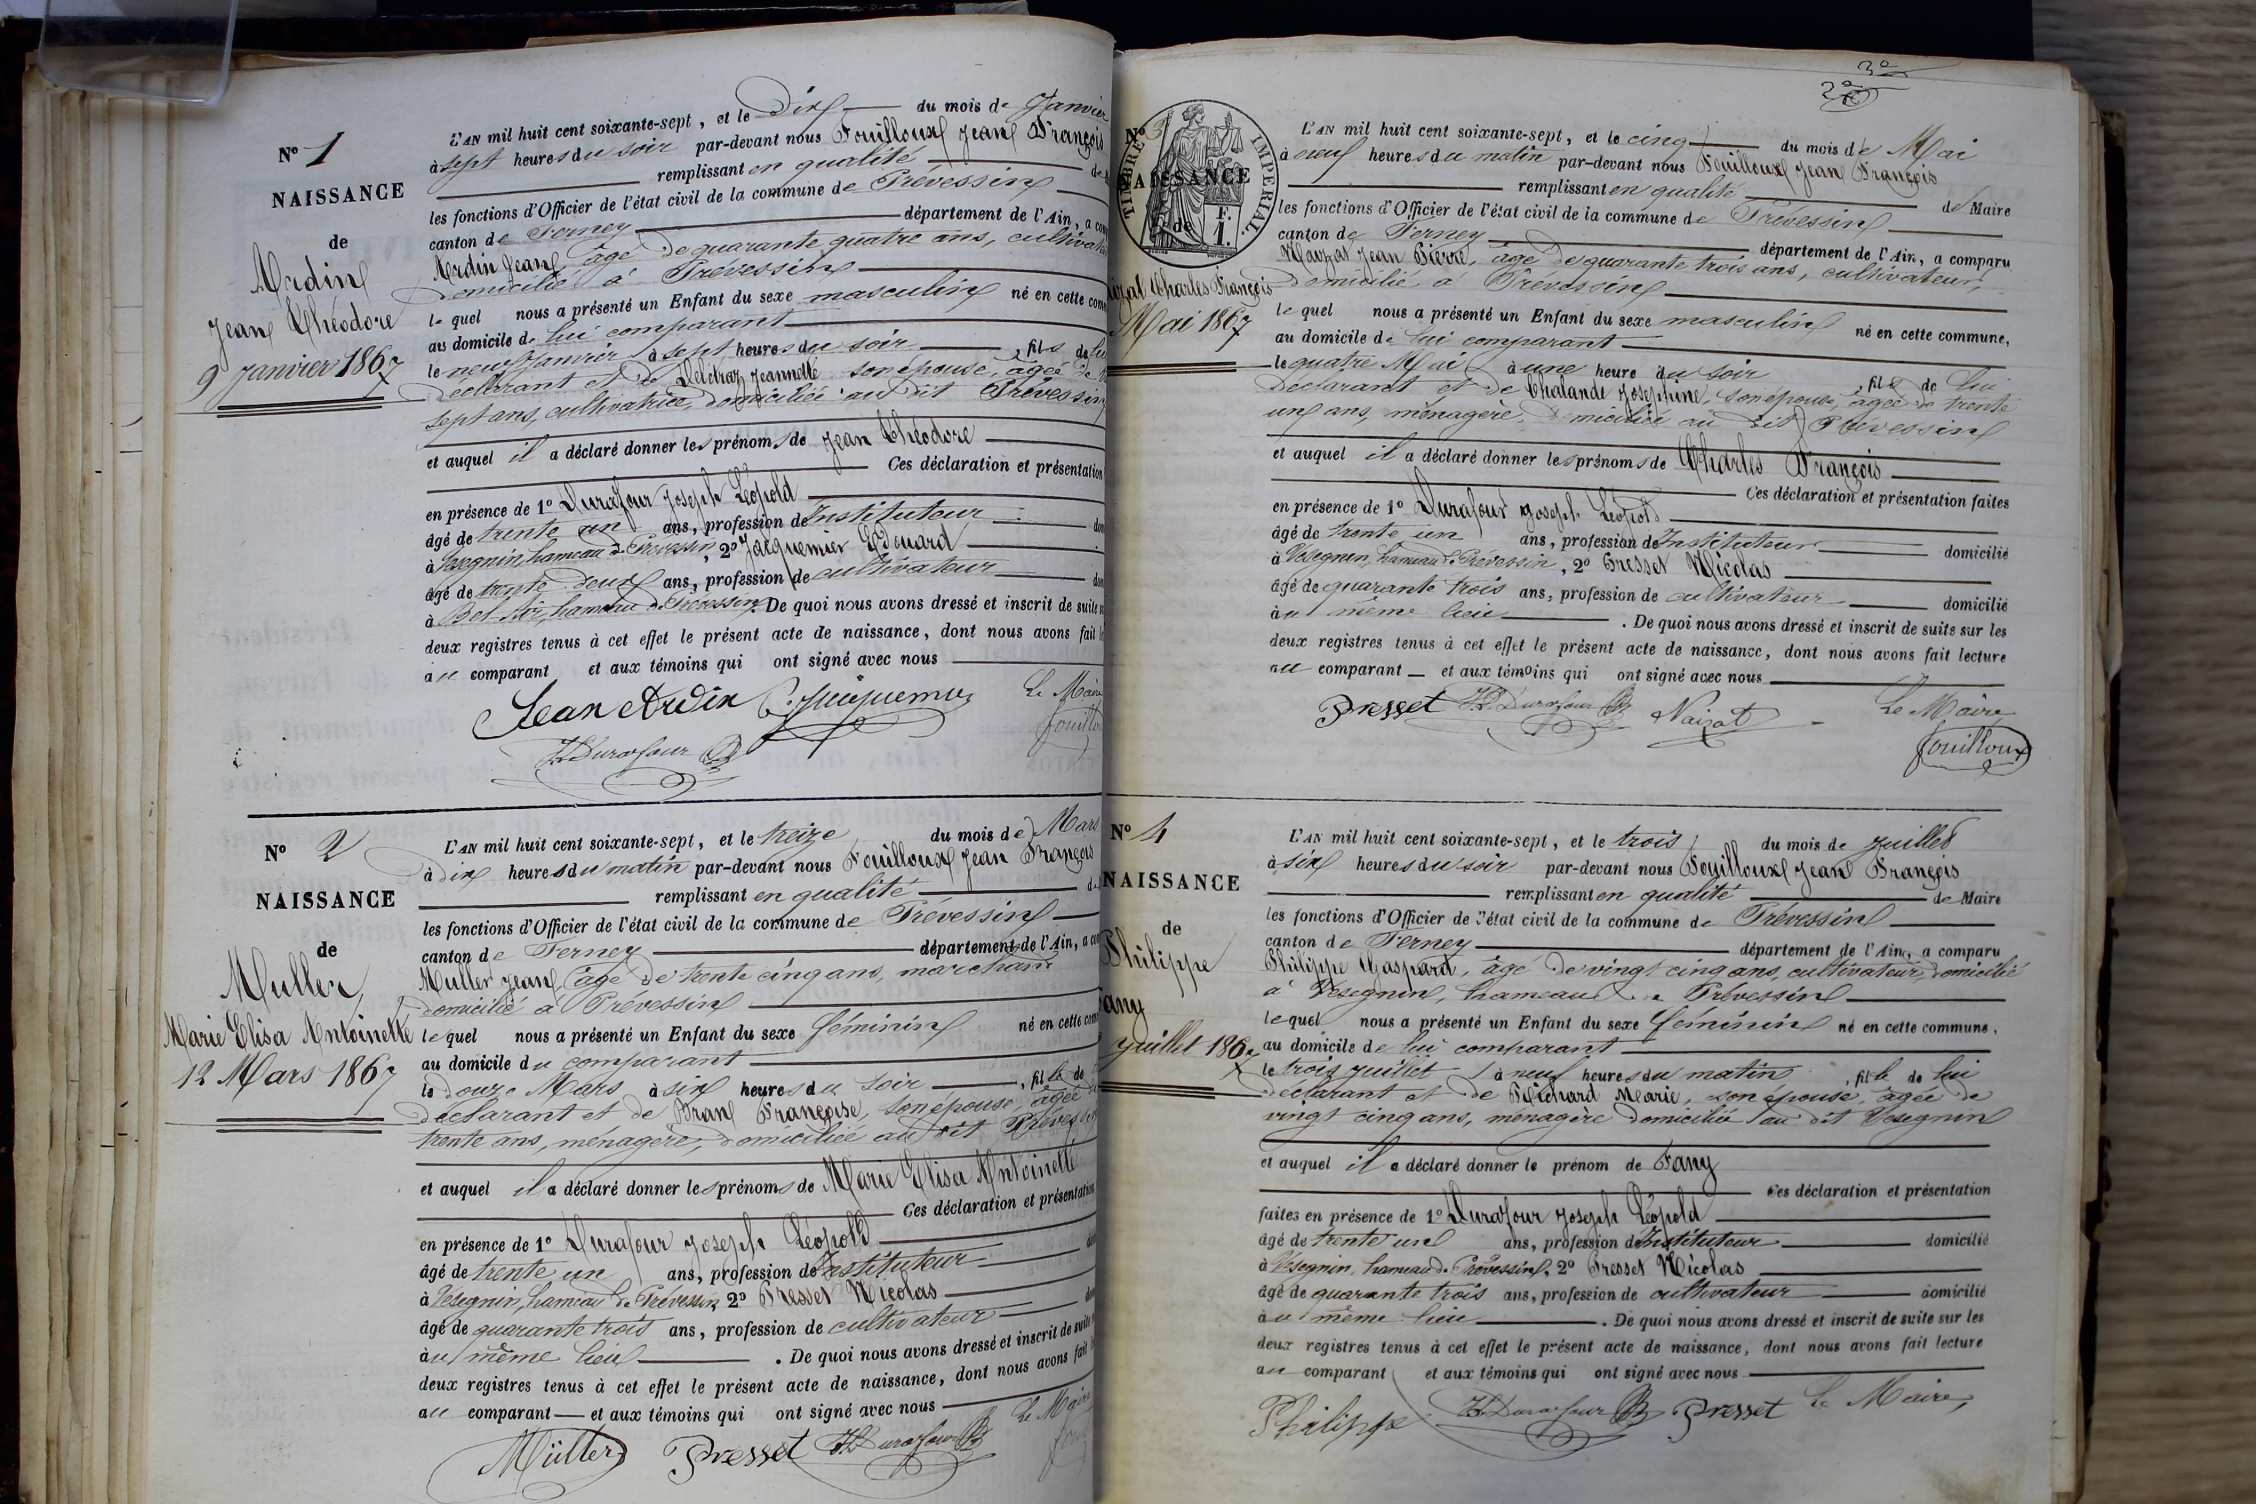 Nº 1
NAISSANCE
de
Ardin
Jean Théodore
9 Janvier 1867
L'AN mil huit cent soixante-sept, et le Dix du mois de Janvier
à sept heures du soir par-devant nous Fouilloux Jean François
remplissant en qualité de
les fonctions d'Officier de l'état civil de la commune de Prévessin
canton de Ferney département de l'Ain, a com
Ardin Jean, âgé de quarante quatre ans, cultivateur
domicilié à Prévessin
le quel nous a présenté un Enfant du sexe masculin né en cette com
au domicile de lui comparant
le neuf Janvier à sept heures du soir, fils de lui
déclarant et de Jeannette son épouse, âgée de
sept ans, cultivatrice, domiciliée au dit Prévessin
et auquel il a déclaré donner les prénoms de Jean Théodore
Ces déclaration et présentation
en présence de 1º Durafour Joseph Léopold
âgé de trente un ans, profession de Instituteur
à Vesegnin, hameau de Prévessin, 2º Jacquemier Edouard
âgé de trente deux ans, profession de cultivateur
à Bel-Air, hameau de Prévessin. De quoi nous avons dressé et inscrit de suite
deux registres tenus à cet effet le présent acte de naissance, dont nous avons fait
au comparant et aux témoins qui ont signé avec nous
Jean Ardin E. Jacquemier Le Maire
JL Durafour Fouilloux
Nº 2
NAISSANCE
de
Muller
Marie Elisa Antoinette
12 Mars 1867
L'AN mil huit cent soixante-sept, et le treize du mois de Mars
à dix heures du matin par-devant nous Fouilloux Jean François
remplissant en qualité
les fonctions d'Officier de l'état civil de la commune de Prévessin
canton de Ferney département de l'Ain, a com
Muller Jean, âgé de trente cinq ans, marchand
domicilié à Prévessin
le quel nous a présenté un Enfant du sexe féminin né en cette com
au domicile du comparant
le douze Mars à six heures du soir, fille de
déclarant et de Françoise, son épouse, âgée de
trente ans, ménagère, domiciliée au dit Prévessin
et auquel il a déclaré donner les prénoms de Marie Elisa Antoinette
Ces déclaration et présentation
en présence de 1º Durafour Joseph Léopold
âgé de trente un ans, profession de Instituteur
à Vesegnin, hameau de Prévessin, 2º Presset Nicolas
âgé de quarante trois ans, profession de cultivateur
au même lieu. De quoi nous avons dressé et inscrit de suite
deux registres tenus à cet effet le présent acte de naissance, dont nous avons fait
au comparant et aux témoins qui ont signé avec nous
Le Maire
Müller Presset JL Durafour
3e
2e
Nº 3
TIMBRE IMPÉRIAL.
NAISSANCE
de
F.
1.
Charles François
Mai 1867
L'AN mil huit cent soixante-sept, et le cinq du mois de Mai
à neuf heures du matin par-devant nous Fouilloux Jean François
remplissant en qualité de Maire
les fonctions d'Officier de l'état civil de la commune de Prévessin
canton de Ferney département de l'Ain, a comparu
Naizat Jean Pierre, âgé de quarante trois ans, cultivateur
domicilié à Prévessin
le quel nous a présenté un Enfant du sexe masculin né en cette commune,
au domicile de lui comparant
le quatre Mai à une heure du soir, fils de lui
déclarant et de Chalande Josephine, son épouse, âgée de trente
un ans, ménagère, domiciliée au dit Prévessin
et auquel il a déclaré donner les prénoms de Charles François
Ces déclaration et présentation faites
en présence de 1º Durafour Joseph Léopold
âgé de trente un ans, profession de Instituteur domicilié
à Vesegnin, hameau de Prévessin, 2º Presset Nicolas
âgé de quarante trois ans, profession de cultivateur domicilié
au même lieu. De quoi nous avons dressé et inscrit de suite sur les
deux registres tenus à cet effet le présent acte de naissance, dont nous avons fait lecture
au comparant et aux témoins qui ont signé avec nous
Presset JL Durafour Naizat Le Maire
Fouilloux
Nº 4
NAISSANCE
de
Philippe
Fany
Juillet 1867
L'AN mil huit cent soixante-sept, et le trois du mois de Juillet
à six heures du soir par-devant nous Fouilloux Jean François
remplissant en qualité de Maire
les fonctions d'Officier de l'état civil de la commune de Prévessin
canton de Ferney département de l'Ain, a comparu
Philippe Gaspard, âgé de vingt cinq ans, cultivateur, domicilié
à Vesegnin, hameau de Prévessin
lequel nous a présenté un Enfant du sexe féminin né en cette commune,
au domicile de lui comparant
le trois Juillet à neuf heures du matin, fille de lui
déclarant et de Marie, son épouse, âgée de
vingt cinq ans, ménagère domiciliée au dit Vesegnin
et auquel il a déclaré donner le prénom de Fany
Ces déclaration et présentation
faites en présence de 1º Durafour Joseph Léopold
âgé de trente un ans, profession de Instituteur domicilié
à Vesegnin, hameau de Prévessin, 2º Presset Nicolas
âgé de quarante trois ans, profession de cultivateur domicilié
au même lieu. De quoi nous avons dressé et inscrit de suite sur les
deux registres tenus à cet effet le présent acte de naissance, dont nous avons fait lecture
au comparant et aux témoins qui ont signé avec nous
Philippe JL Durafour Presset Le Maire,